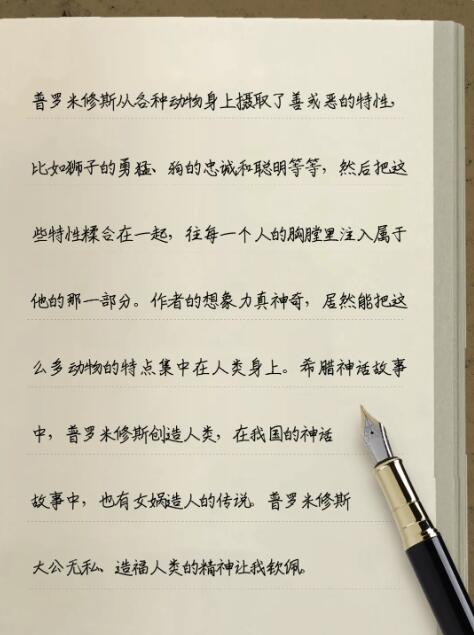 普罗米修斯从各种动物身上摄取了善或恶的特性，
比如狮子的勇猛、狗的忠诚和聪明等等，然后把这
些特性糅合在一起，往每一个人的胸膛里注入属于
他的那一部分。作者的想象力真神奇，居然能把这
么多动物的特点集中在人类身上。希腊神话故事
中，普罗米修斯创造人类，在我国的神话
故事中，也有女娲造人的传说。普罗米修斯
大公无私、造福人类的精神让我钦佩。